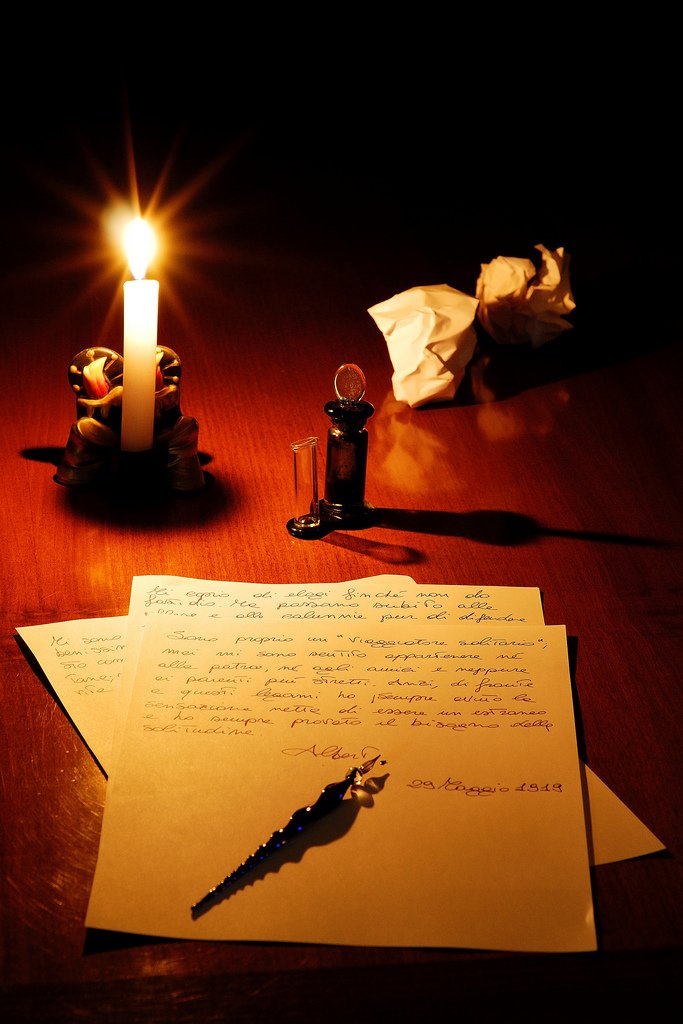 Mi copro di elogi finché non do
fastidio. Ma passano subito alle
e alle calunnie pur di difendere
Mi sono
sto com
Sono proprio un "Viaggiatore solitario",
mai mi sono sentito appartenere né
alla patria, né agli amici e neppure
ai parenti più stretti. Anzi, di fronte
a questi legami ho sempre avuto la
sensazione netta di essere un estraneo
e ho sempre provato il bisogno della
solitudine
Albert
29 Maggio 1919